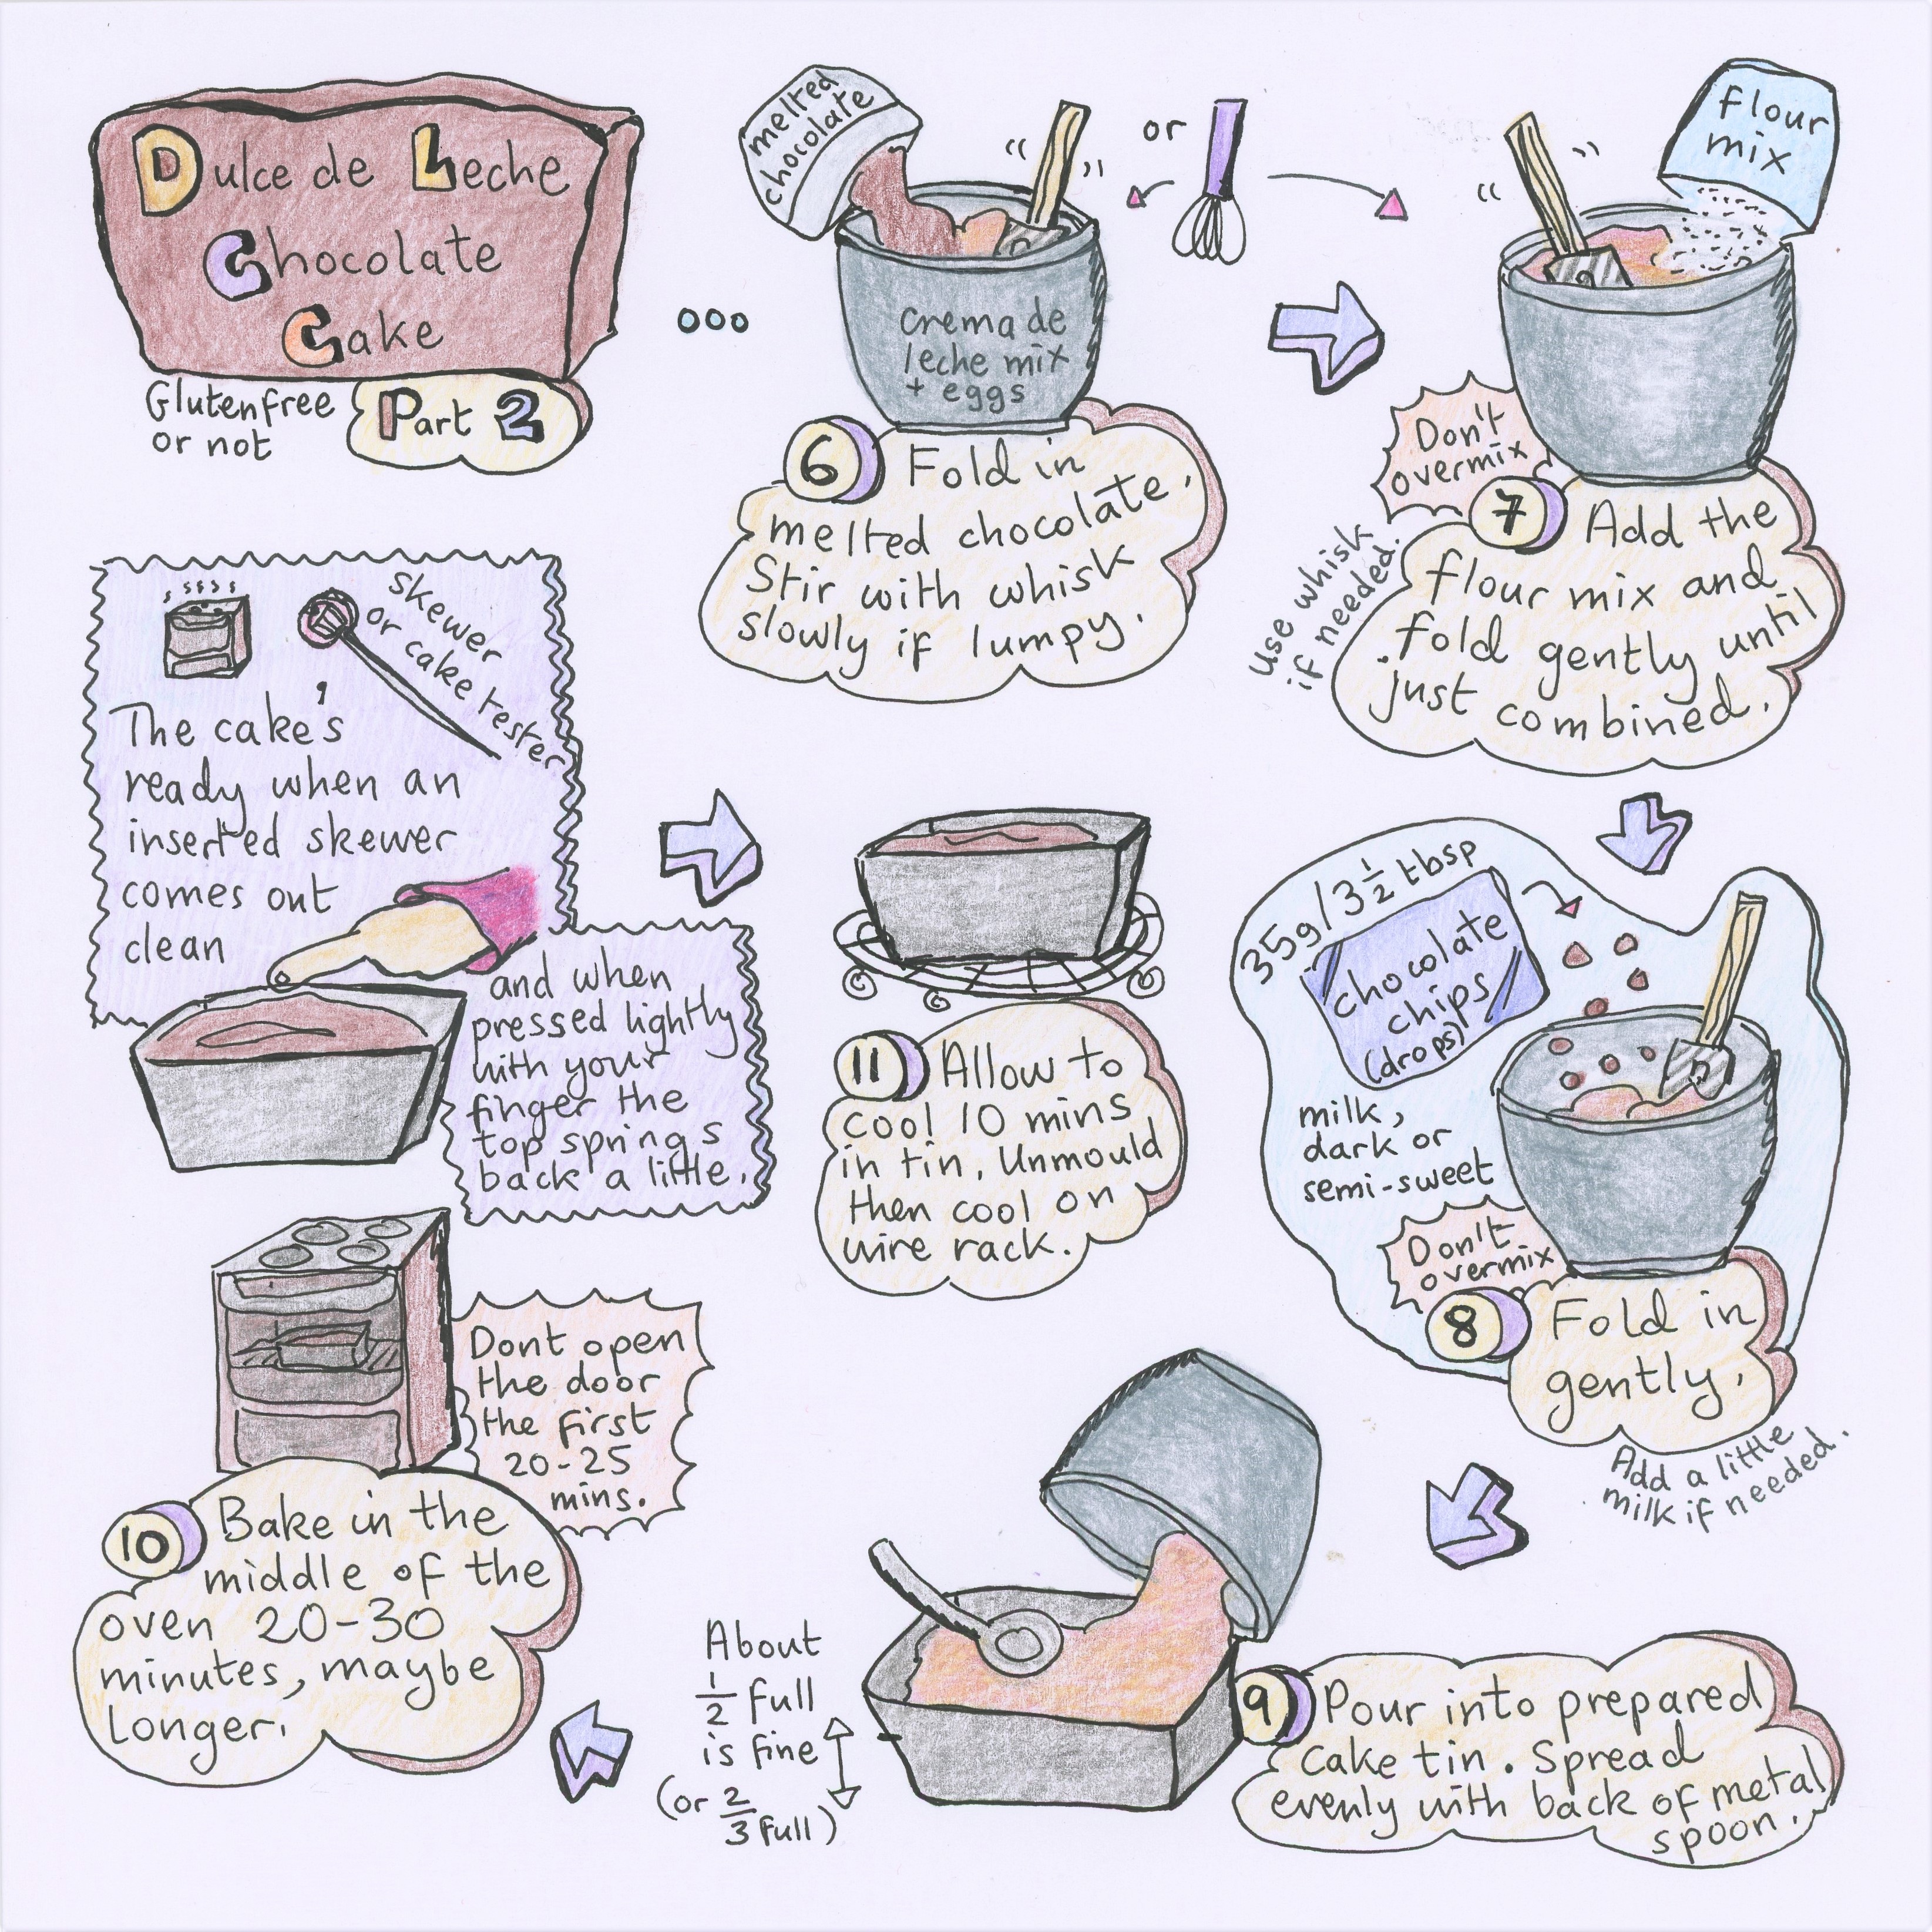 Dulce de Leche
Chocolate
Cake
Glutenfree
or not
Part 2
melted
chocolate
or
Crema de
leche mix
+ eggs
6 Fold in
melted chocolate.
Stir with whisk
slowly if lumpy.
flour
mix
Don't
overmix
use whisk
if needed.
7 Add the
flour mix and
fold gently until
just combined.
35g/3 1/2 tbsp
chocolate
chips
(drops)
milk,
dark or
semi-sweet
Don't
overmix
8 Fold in
gently.
Add a little
milk if needed.
9 Pour into prepared
cake tin. Spread
evenly with back of metal
spoon.
About
1/2 full
is fine
(or 2/3 full)
10 Bake in the
middle of the
oven 20-30
minutes, maybe
longer.
Dont open
the door
the first
20-25
mins.
skewer
or cake tester
The cake's
ready when an
inserted skewer
comes out
clean
and when
pressed lightly
with your
finger the
top springs
back a little.
11 Allow to
cool 10 mins
in tin. Unmould
then cool on
wire rack.